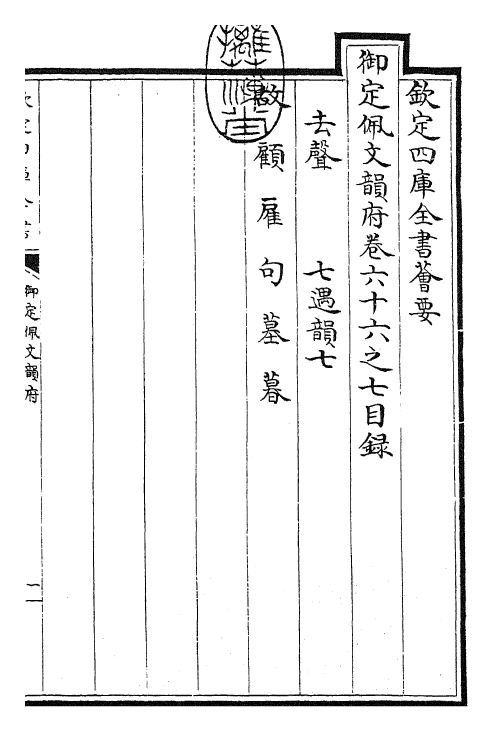 欽定四庫全書薈要
御定佩文韻府卷六十六之七目録
去聲 七遇韻七
故 顧 雇 句 墓 暮
御定佩文韻府
一